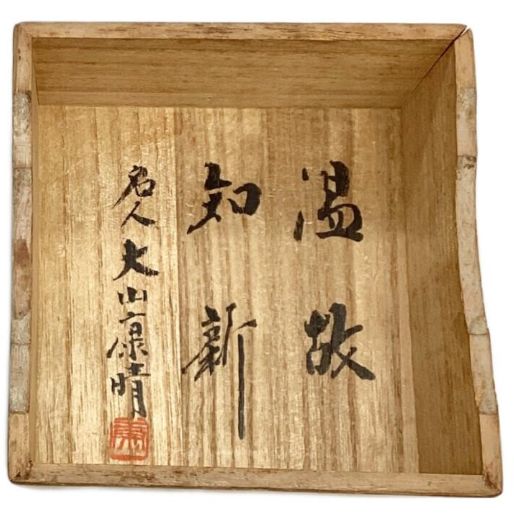 温故
知新
名人大山康晴